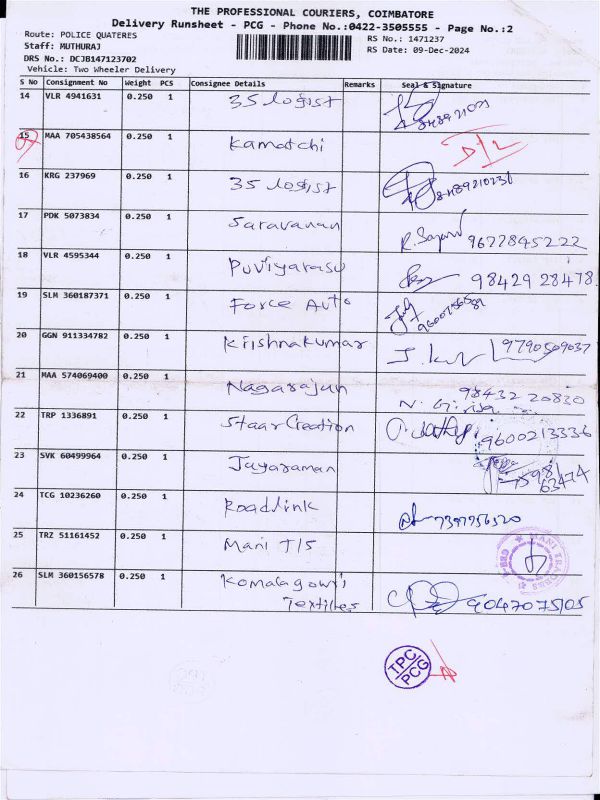 THE PROFESSIONAL COURIERS, COIMBATORE
Delivery Runsheet - PCG - Phone No.:0422-3505555 - Page No.:2
Route: POLICE QUATERES
RS No.: 1471237
Staff: MUTHURAJ
RS Date: 09-Dec-2024
DRS No.: DCJB147123702
Vehicle: Two Wheeler Delivery
S No Consignment No Weight PCS Consignee Details Remarks Seal & Signature
14 VLR 4941631 0.250 1 35 Logist
15 MAA 705438564 0.250 1 Kamatchi D/L
16 KRG 237969 0.250 1 35 Logist
17 PDK 5073834 0.250 1 Saravanan 9677845222
18 VLR 4595344 0.250 1 Puviyarasu 98429 28478
19 SLM 360187371 0.250 1 Force Auto
20 GGN 911334782 0.250 1 Krishnakumar 9790509037
21 MAA 574069400 0.250 1 Nagarajun 98432 20830
22 TRP 1336891 0.250 1 Staar Creation 9600213336
23 SVK 60499964 0.250 1 Jayaraman
24 TCG 10236260 0.250 1 Roadlink
25 TRZ 51161452 0.250 1 Mani T/S MANI TRADERS
26 SLM 360156578 0.250 1 Komalagowri
Textiles 9047075105
TPC
PCG